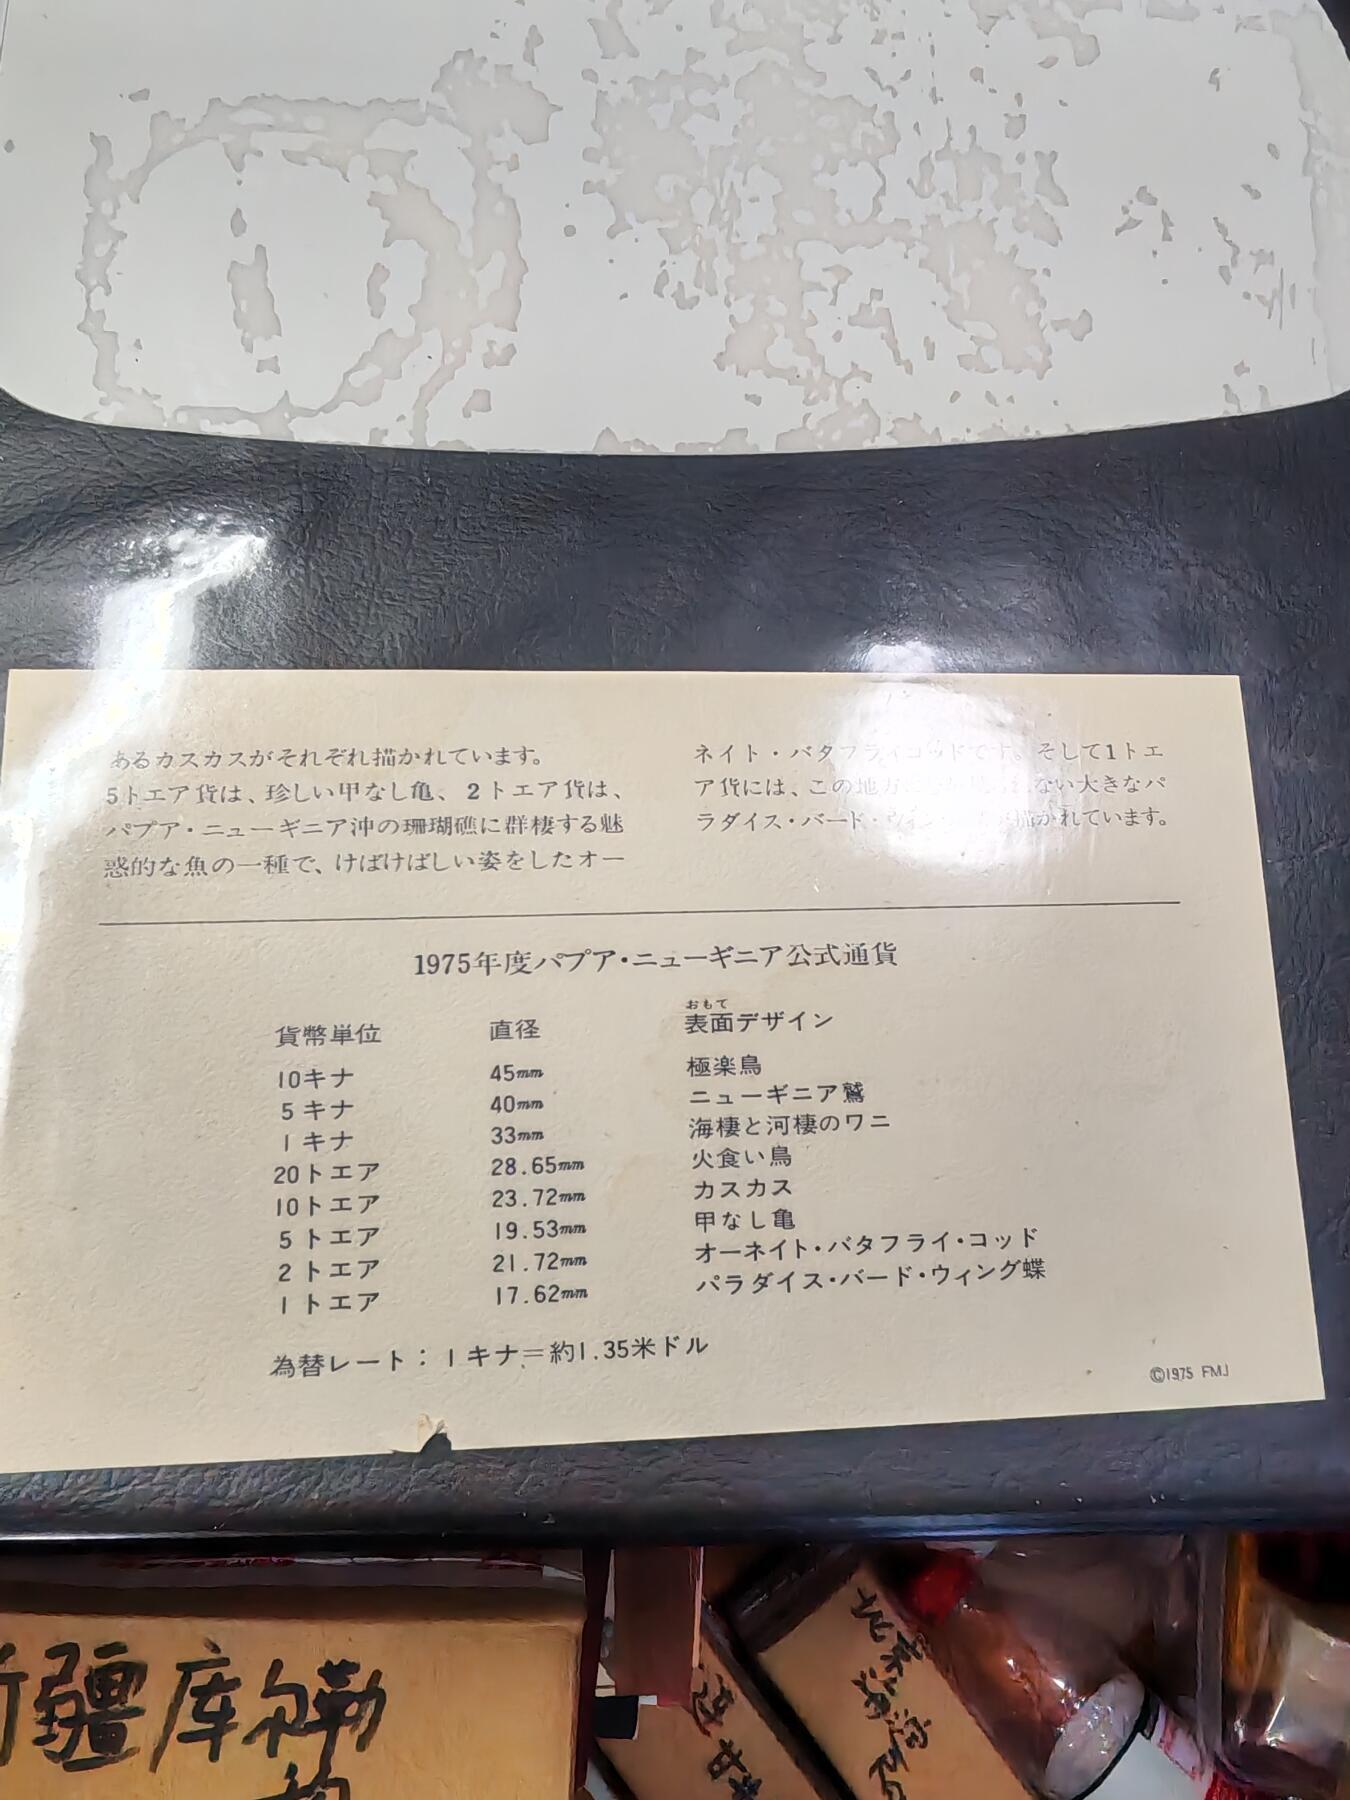 あるカスカスがそれぞれ描かれています。
5トエア貨は、珍しい甲なし亀、2トエア貨は、
パプア・ニューギニア沖の珊瑚礁に群棲する魅
惑的な魚の一種で、けばけばしい姿をしたオー
ネイト・バタフライコッドです。そして1トエ
ア貨には、この地方 ない大きなパ
ラダイス・バード・ウィン 描かれています。
1975年度パプア・ニューギニア公式通貨
貨幣単位 直径 表面デザイン
おもて
10キナ 45mm 極楽鳥
5キナ 40mm ニューギニア鷲
1キナ 33mm 海棲と河棲のワニ
20トエア 28.65mm 火食い鳥
10トエア 23.72mm カスカス
5トエア 19.53mm 甲なし亀
2トエア 21.72mm オーネイト・バタフライ・コッド
1トエア 17.62mm パラダイス・バード・ウィング蝶
為替レート：1キナ＝約1.35米ドル
©1975 FMJ
疆库尔勒